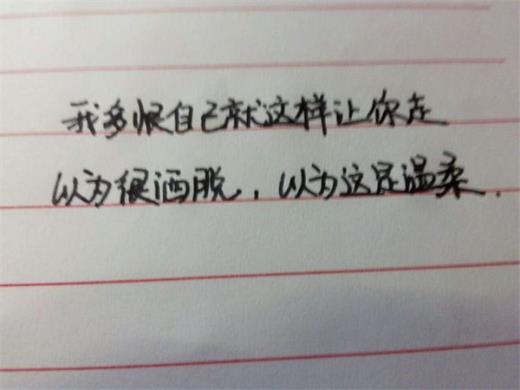 我多恨自己就这样让你走
以为很洒脱，以为这是温柔.